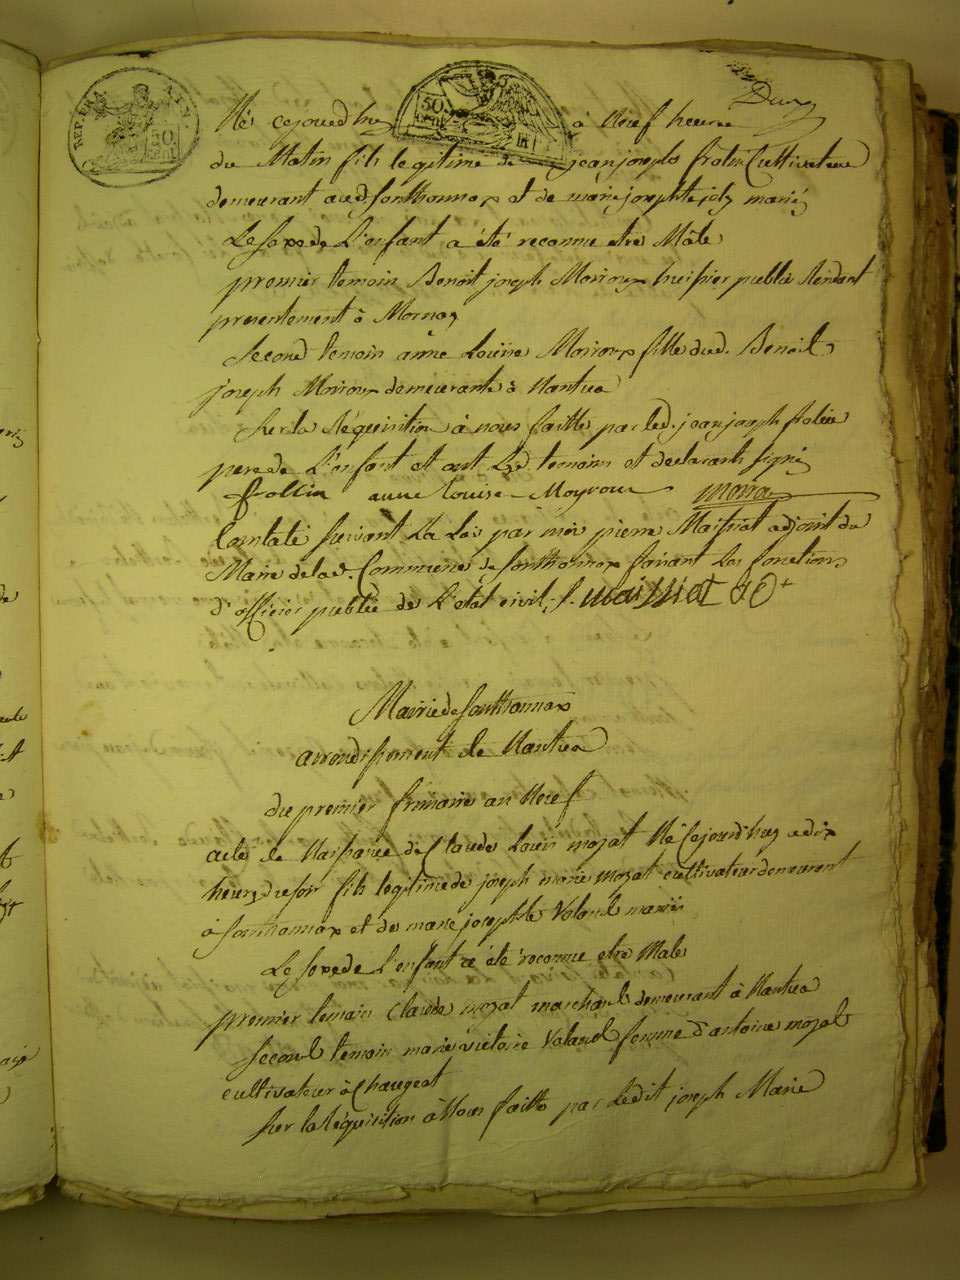 REP. FRA. AIN.
50
50
Né cejourd'huy à Neuf heure
du Matin fils legitime de jean joseph frolin Cultivateur
demeurant aud Sonthonnax et de marie josephte joly mariés
Le sexe de L'enfant a été reconnu etre Mâle
premier temoin Benoit joseph Moiroux huissier public Residant
presentement à Mornay
Second temoin anne Louise Moiroux fille dud. Benoit
joseph Moiroux demeurante à Nantua
Sur la Réquisition à nous faitte par led. jean joseph frolin
pere de L'enfant et ont Led temoins et declarant signé
frollin anne Louise Moyroux
Constaté suivant La Loi par moi pierre Maissiat adjoint du
Maire de lad. Commune de Sonthonnax faisant les fonctions
d'officier public de L'etat civil. /. maissiat
Mairie de Sonthonnax
arrondissement de Nantua
du premier frimaire an Neuf
acte de Naissance de Claude Louis mozat Né Cejourd'huy a dix
heurs du soir fils legitime de joseph marie mozat cultivateur demeurant
à Sonthonnax et de marie josephte Voland mariés
Le sexe de L'enfant a été reconnu etre Male
premier temoin Claude mozat marchand demeurant à Nantua
Second temoin marie victoire Voland femme d'antoine mozat
cultivateur à Chougeat
Sur la Réquisition à Nous faitte par Ledit joseph Marie